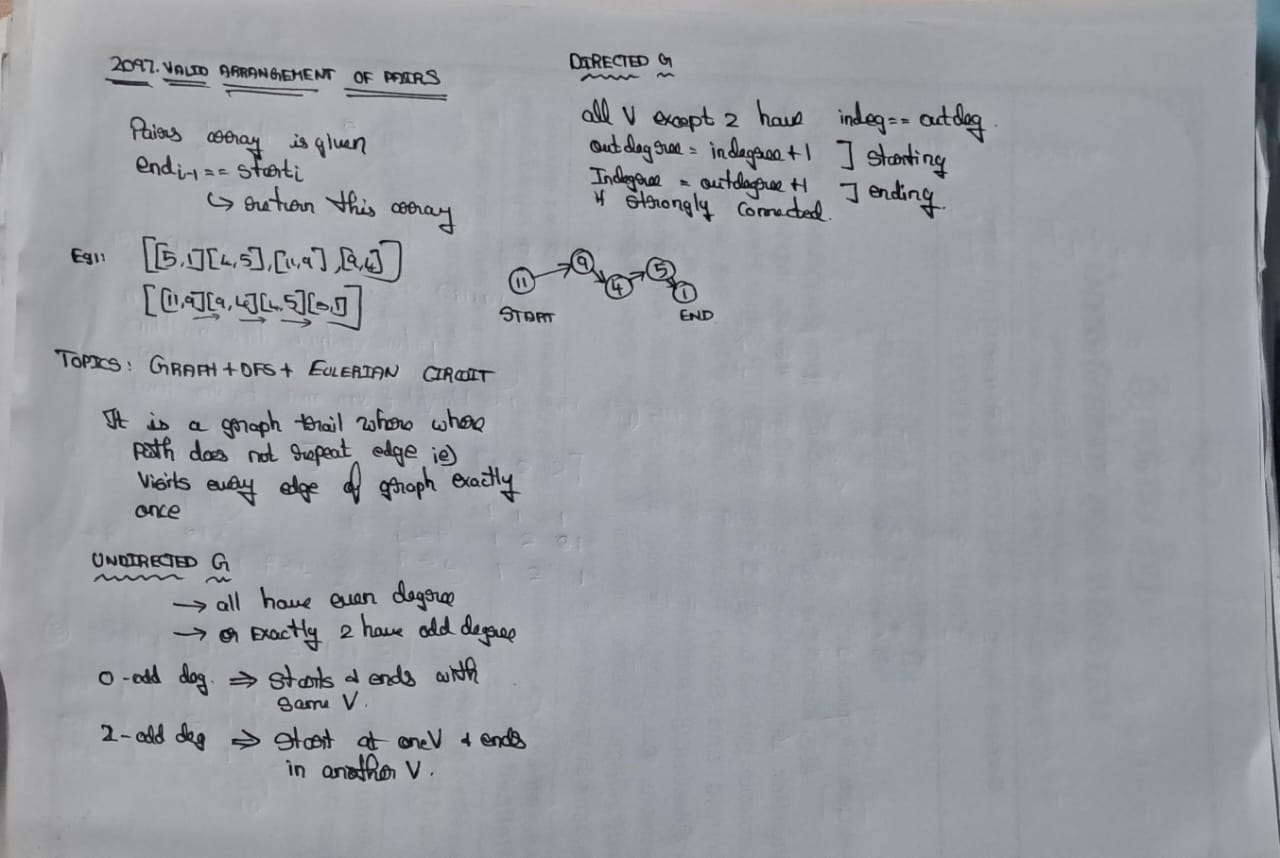 2097. VALID ARRANGEMENT OF PAIRS
Pairs array is given
end i-1 == start i
↳ return this array
Eg1: [[5,1][4,5],[11,9],[9,4]]
[[11,9][9,4][4,5][5,1]]
TOPICS: GRAPH + DFS + EULERIAN CIRCUIT
It is a graph trail where where
path does not repeat edge ie)
Visits every edge of graph exactly
once
UNDIRECTED G
→ all have even degree
→ or Exactly 2 have odd degree
0-odd deg. ⇒ Starts & ends with
same V.
2-odd deg ⇒ Start at one V & ends
in another V.
DIRECTED G
all V except 2 have indeg == outdeg.
outdegree = indegree + 1 ] starting
Indegree = outdegree + 1 ] ending.
if strongly connected.
11 → 9 → 4 → 5 → 1
START END